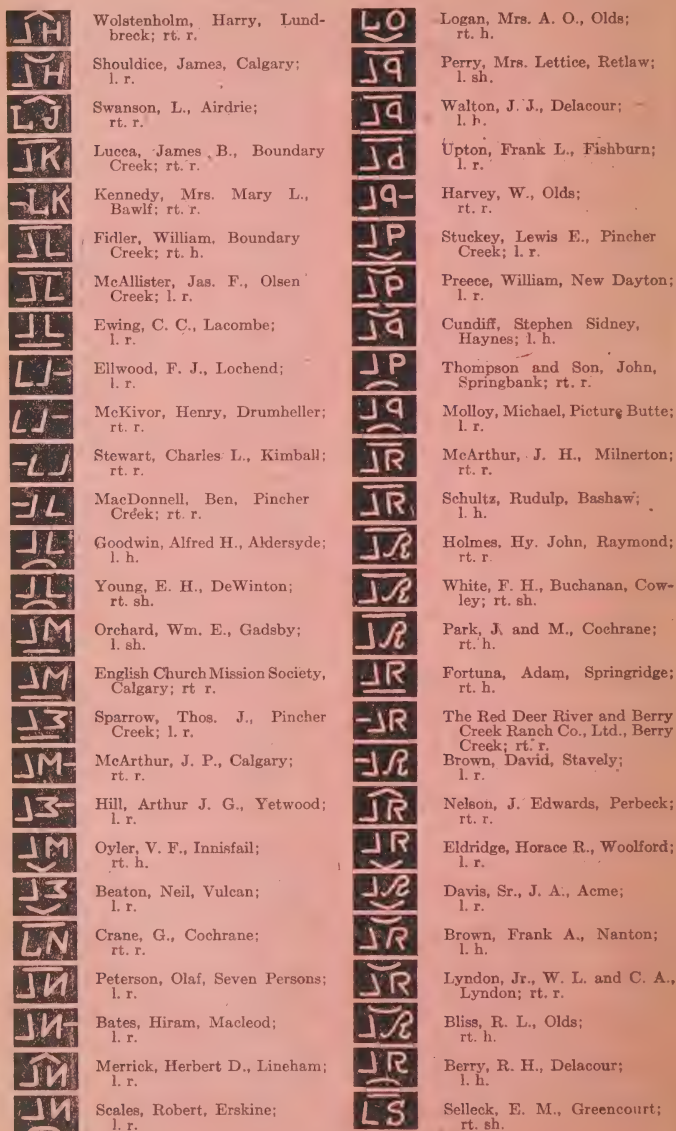 Wolstenholm, Harry, Lund-
breck; rt. r.
Shouldice, James, Calgary;
l. r.
Swanson, L., Airdrie;
rt. r.
Lucca, James B., Boundary
Creek; rt. r.
Kennedy, Mrs. Mary L.,
Bawlf; rt. r.
Fidler, William, Boundary
Creek; rt. h.
McAllister, Jas. F., Olsen
Creek; l. r.
Ewing, C. C., Lacombe;
l. r.
Ellwood, F. J., Lochend;
l. r.
McKivor, Henry, Drumheller;
rt. r.
Stewart, Charles L., Kimball;
rt. r.
MacDonnell, Ben, Pincher
Creek; rt. r.
Goodwin, Alfred H., Aldersyde;
l. h.
Young, E. H., DeWinton;
rt. sh.
Orchard, Wm. E., Gadsby;
l. sh.
English Church Mission Society,
Calgary; rt r.
Sparrow, Thos. J., Pincher
Creek; l. r.
McArthur, J. P., Calgary;
rt. r.
Hill, Arthur J. G., Yetwood;
l. r.
Oyler, V. F., Innisfail;
rt. h.
Beaton, Neil, Vulcan;
l. r.
Crane, G., Cochrane;
rt. r.
Peterson, Olaf, Seven Persons;
l. r.
Bates, Hiram, Macleod;
l. r.
Merrick, Herbert D., Lineham;
l. r.
Scales, Robert, Erskine;
l. r.
Logan, Mrs. A. O., Olds;
rt. h.
Perry, Mrs. Lettice, Retlaw;
l. sh.
Walton, J. J., Delacour;
l. h.
Upton, Frank L., Fishburn;
l. r.
Harvey, W., Olds;
rt. r.
Stuckey, Lewis E., Pincher
Creek; l. r.
Preece, William, New Dayton;
l. r.
Cundiff, Stephen Sidney,
Haynes; l. h.
Thompson and Son, John,
Springbank; rt. r.
Molloy, Michael, Picture Butte;
l. r.
McArthur, J. H., Milnerton;
rt. r.
Schultz, Rudulp, Bashaw;
l. h.
Holmes, Hy. John, Raymond;
rt. r.
White, F. H., Buchanan, Cow-
ley; rt. sh.
Park, J. and M., Cochrane;
rt. h.
Fortuna, Adam, Springridge;
rt. h.
The Red Deer River and Berry
Creek Ranch Co., Ltd., Berry
Creek; rt. r.
Brown, David, Stavely;
l. r.
Nelson, J. Edwards, Perbeck;
rt. r.
Eldridge, Horace R., Woolford;
l. r.
Davis, Sr., J. A., Acme;
l. r.
Brown, Frank A., Nanton;
l. h.
Lyndon, Jr., W. L. and C. A.,
Lyndon; rt. r.
Bliss, R. L., Olds;
rt. h.
Berry, R. H., Delacour;
l. h.
Selleck, E. M., Greencourt;
rt. sh.